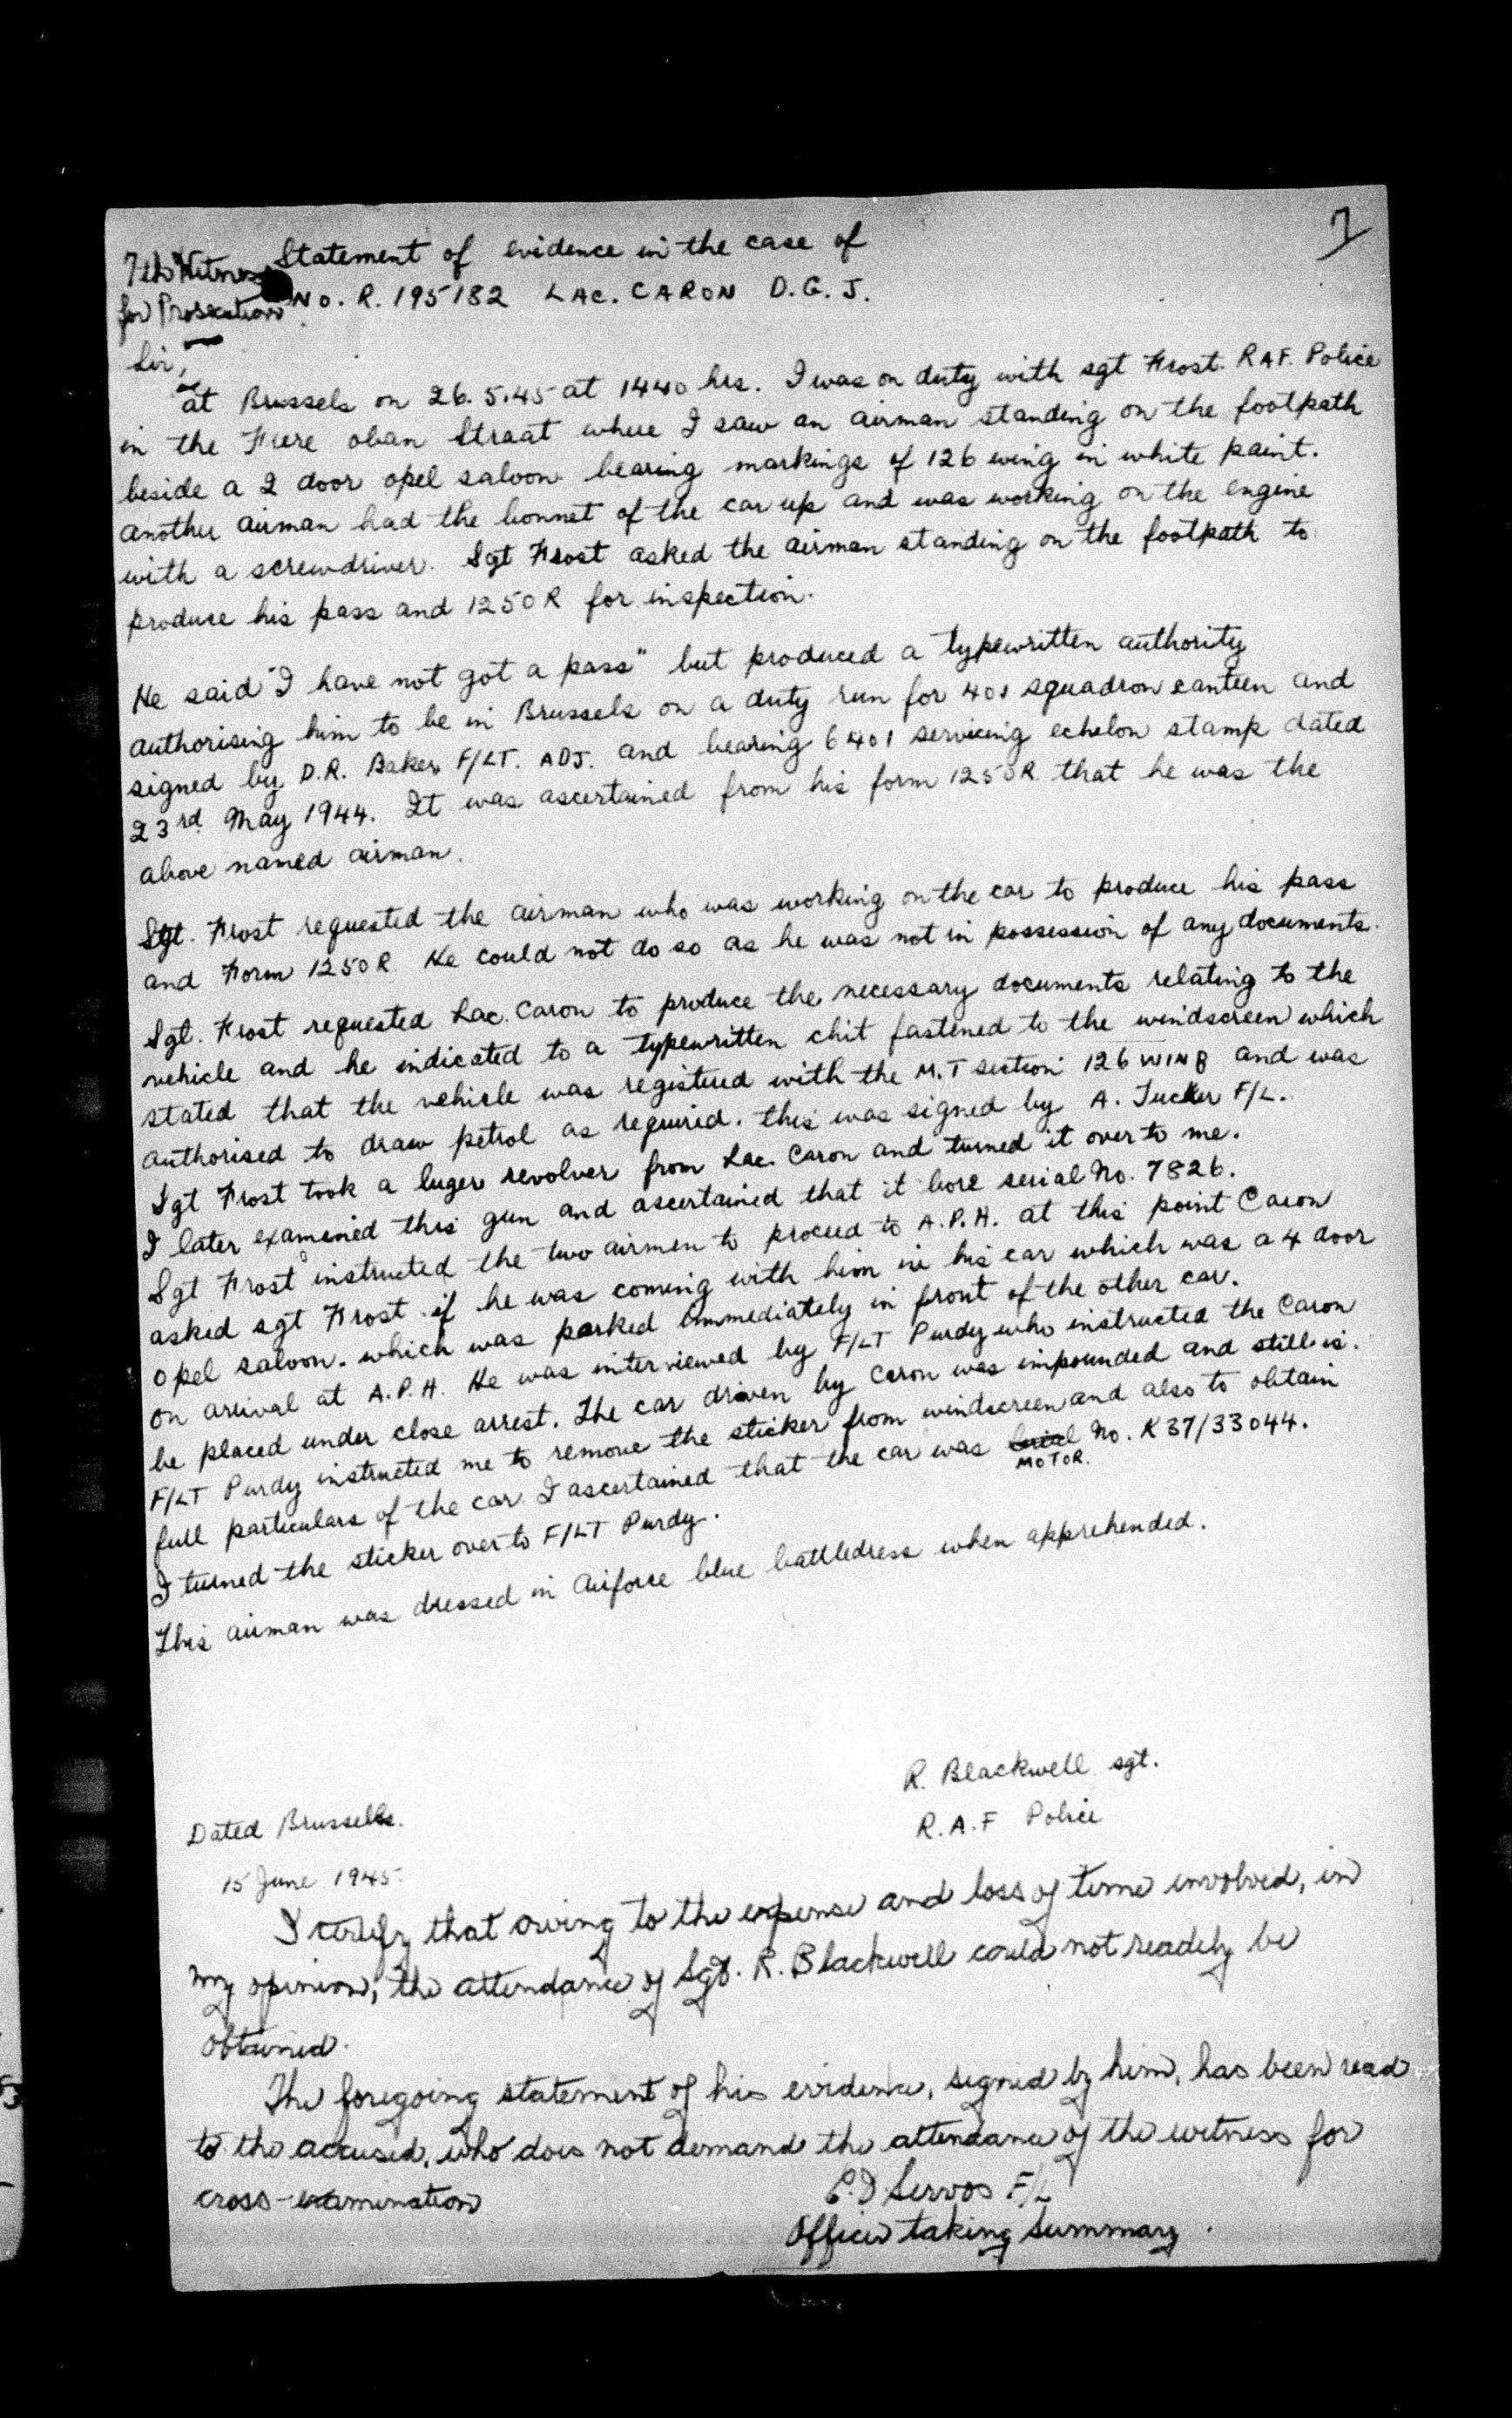 7
7th Witness
for Prosecution
Statement of evidence in the case of
No. R. 195182 LAC. CARON D.G.J.
Sir,
at Brussels on 26.5.45 at 1440 hrs. I was on duty with sgt Frost. RAF. Police
in the Frere oban Straat where I saw an airman standing on the footpath
beside a 2 door opel saloon bearing markings of 126 wing in white paint.
another airman had the bonnet of the car up and was working on the engine
with a screwdriver. Sgt Frost asked the airman standing on the footpath to
produce his pass and 1250R for inspection.
He said "I have not got a pass" but produced a typewritten authority
authorising him to be in Brussels on a duty run for 401 squadron canteen and
signed by D.R. Baker F/LT. ADJ. and bearing 6401 servicing echelon stamp dated
23rd May 1944. It was ascertained from his form 1250R that he was the
above named airman.
Sgt. Frost requested the airman who was working on the car to produce his pass
and Form 1250R He could not do so as he was not in possession of any documents.
Sgt. Frost requested Lac. Caron to produce the necessary documents relating to the
vehicle and he indicated to a typewritten chit fastened to the windscreen which
stated that the vehicle was registered with the M.T section 126 WING and was
authorised to draw petrol as required. this was signed by A. Tucker F/L.
Sgt Frost took a luger revolver from Lac. Caron and turned it over to me.
I later examined this gun and ascertained that it bore serial No. 7826.
Sgt Frost instructed the two airmen to proceed to A.P.H. at this point Caron
asked sgt Frost if he was coming with him in his car which was a 4 door
opel saloon. which was parked immediately in front of the other car.
on arrival at A.P.H. He was interviewed by F/LT Purdy who instructed the Caron
be placed under close arrest. The car driven by Caron was impounded and still is.
F/LT Purdy instructed me to remove the sticker from windscreen and also to obtain
full particulars of the car. I ascertained that the car was serial No. K37/33044.
MOTOR.
I turned the sticker over to F/LT Purdy.
This airman was dressed in Airforce blue battledress when apprehended.
R. Blackwell sgt.
R.A.F Police
Dated Brussels.
15 June 1945.
I certify that owing to the expense and loss of time involved, in
my opinion, the attendance of Sgt. R. Blackwell could not readily be
obtained.
The foregoing statement of his evidence, signed by him, has been read
to the accused, who does not demand the attendance of the witness for
cross-examination
Servos F/L
Officer taking Summary.